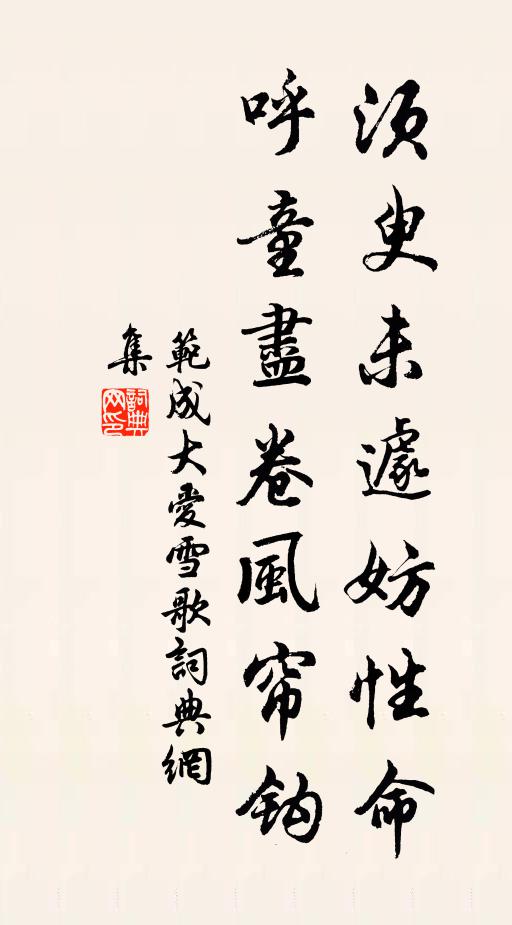 須臾未遽妨性命
呼童盡卷風帘鈎
範成大愛雪歌詞典網
集
詞典
网印